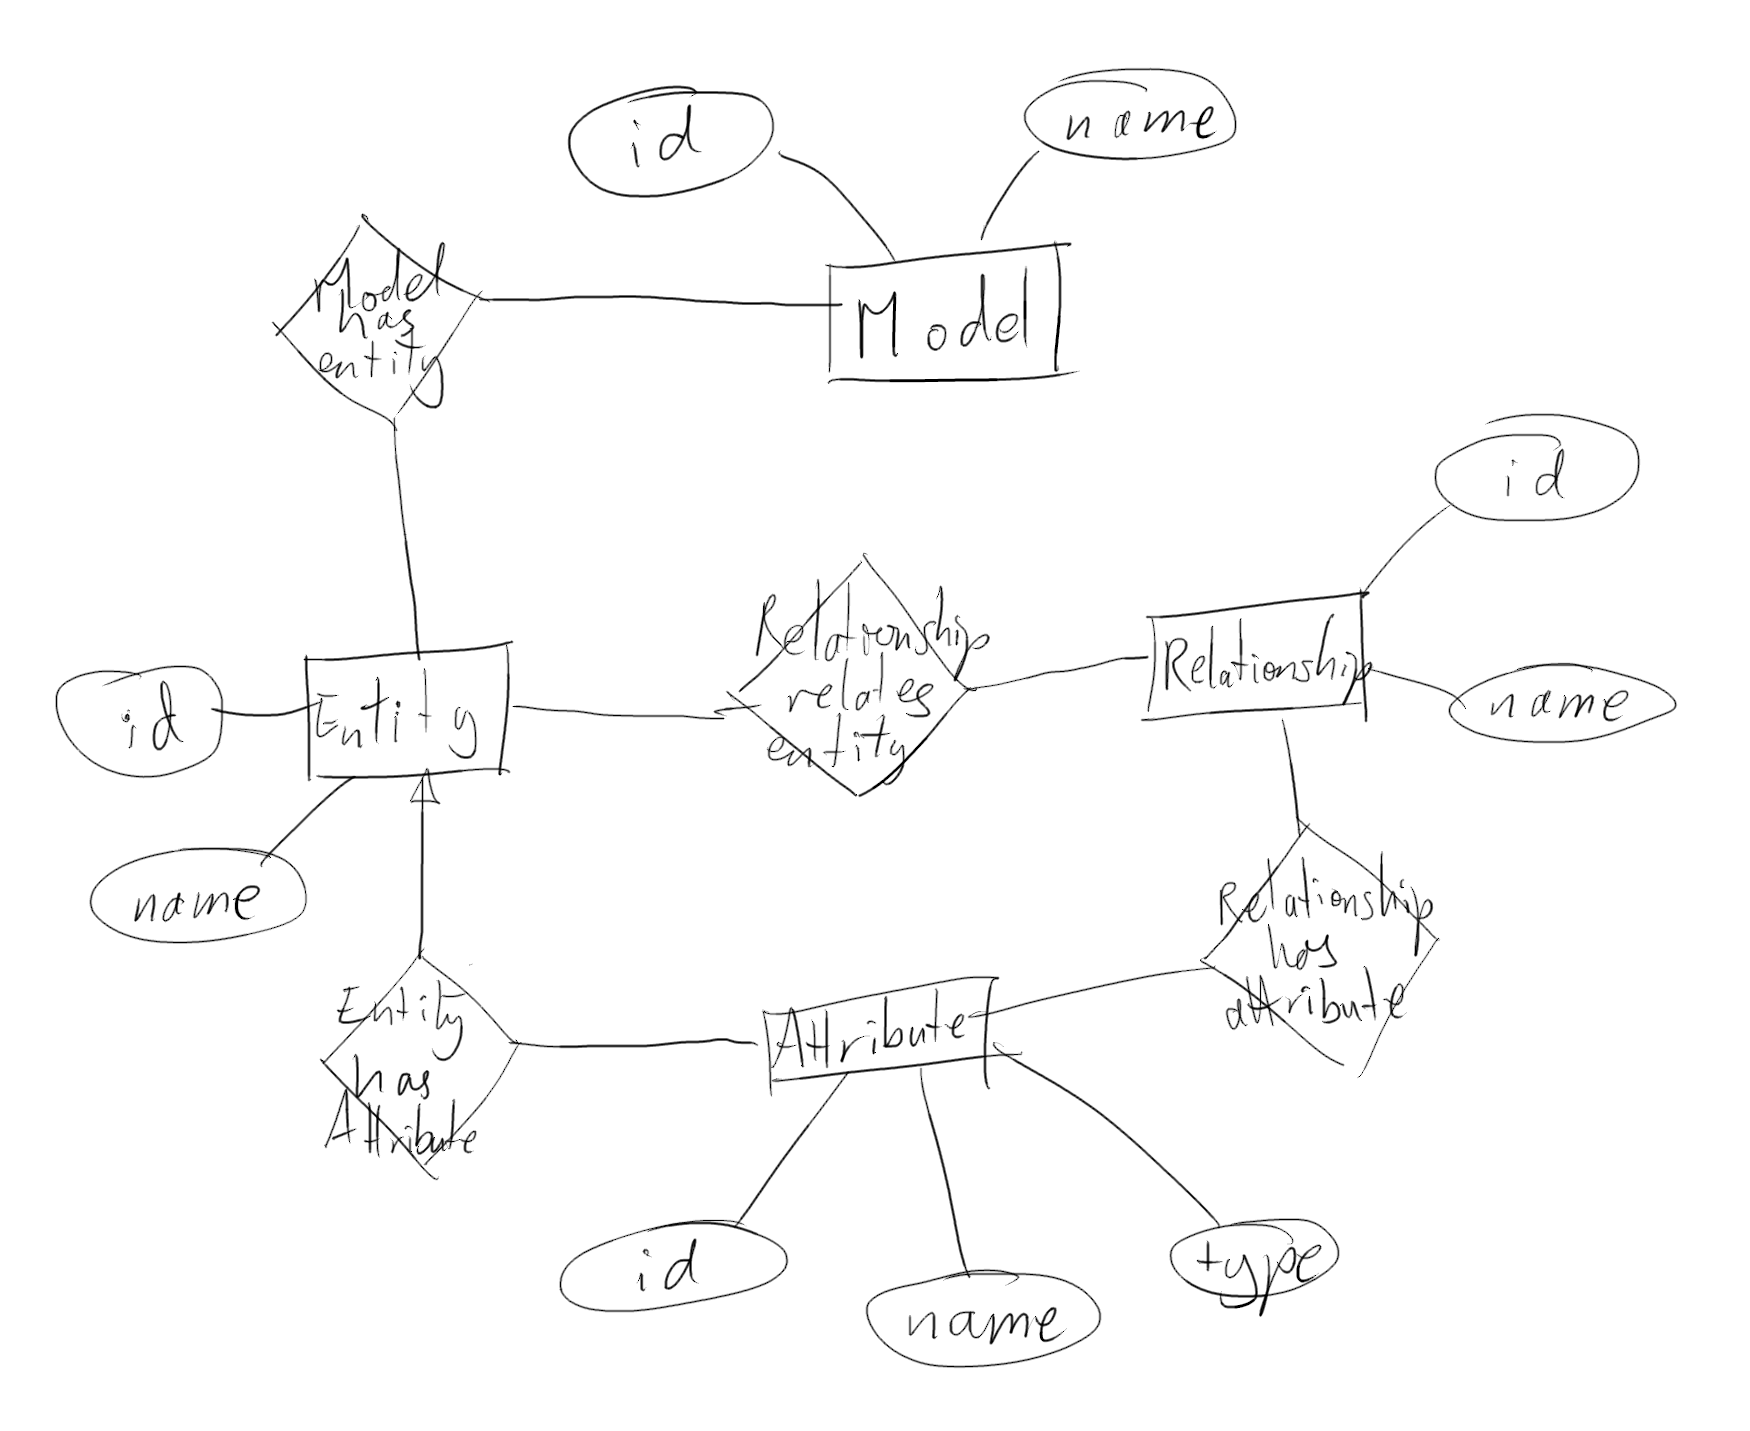 id
name
Model
has
entity
Model
id
Relationship
relates
entity
Relationship
id
Entity
name
name
Relationship
has
attribute
Entity
has
Attribute
Attribute
id
name
type